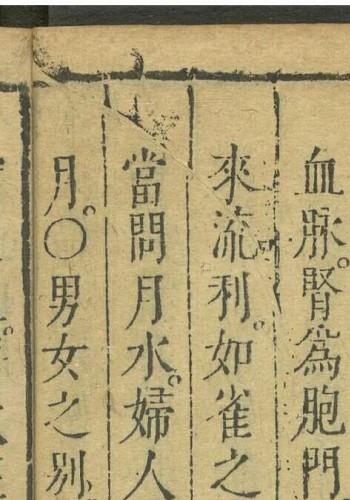 血脉。腎為胞門
來流利。如雀之
當問月水。婦人
月。○男女之別